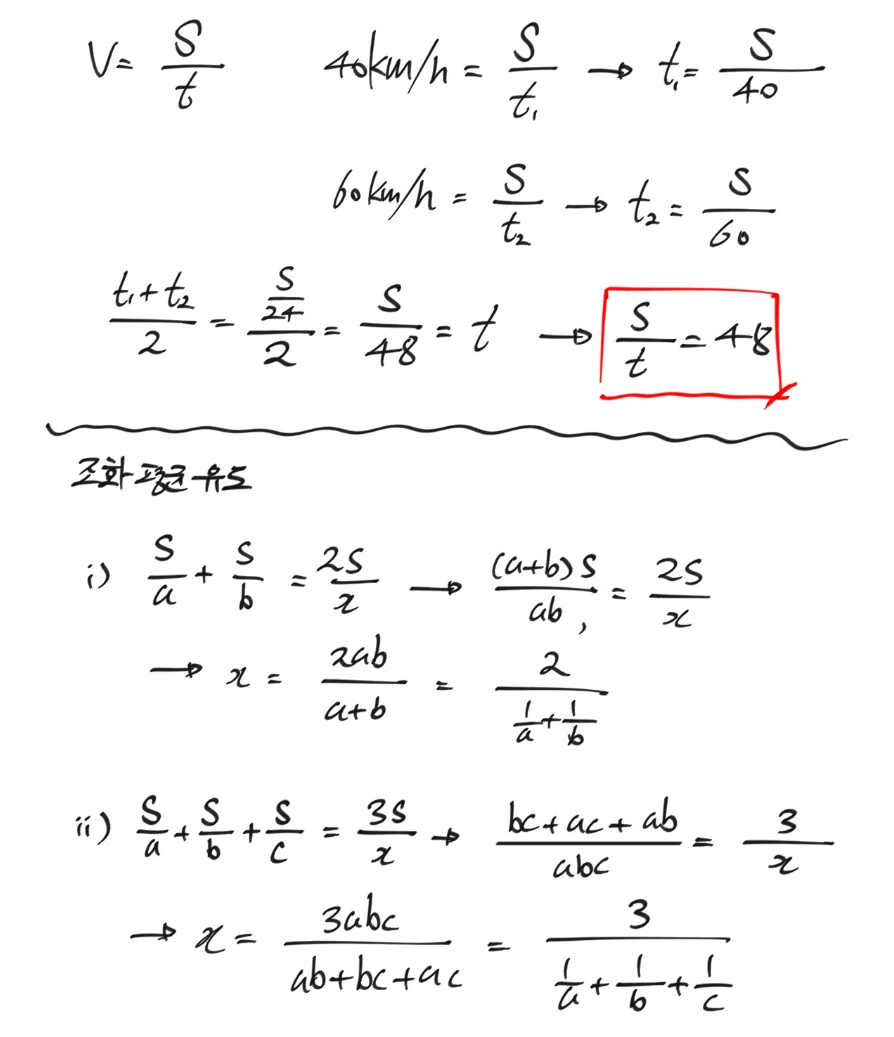 V = S/t 40km/h = S/t₁ → t₁ = S/40
60km/h = S/t₂ → t₂ = S/60
(t₁+t₂)/2 = (S/24)/2 = S/48 = t → S/t = 48
조화평균유도
i) S/a + S/b = 2S/x → (a+b)S/ab, = 2S/x
→ x = 2ab/(a+b) = 2/(1/a+1/b)
ii) S/a + S/b + S/c = 3S/x → (bc+ac+ab)/abc = 3/x
→ x = 3abc/(ab+bc+ac) = 3/(1/a+1/b+1/c)